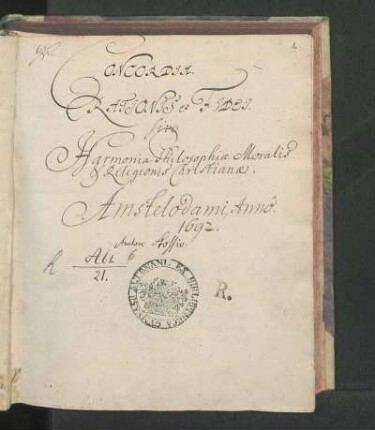 CONCORDIA
RATIONIS et FIDEI.
sive
Harmonia Philosophiæ Moralis
& Religionis Christianæ.
Amstelodami, Anno.
1692.
Autore Stossio
R Abt. 6
21.
R.